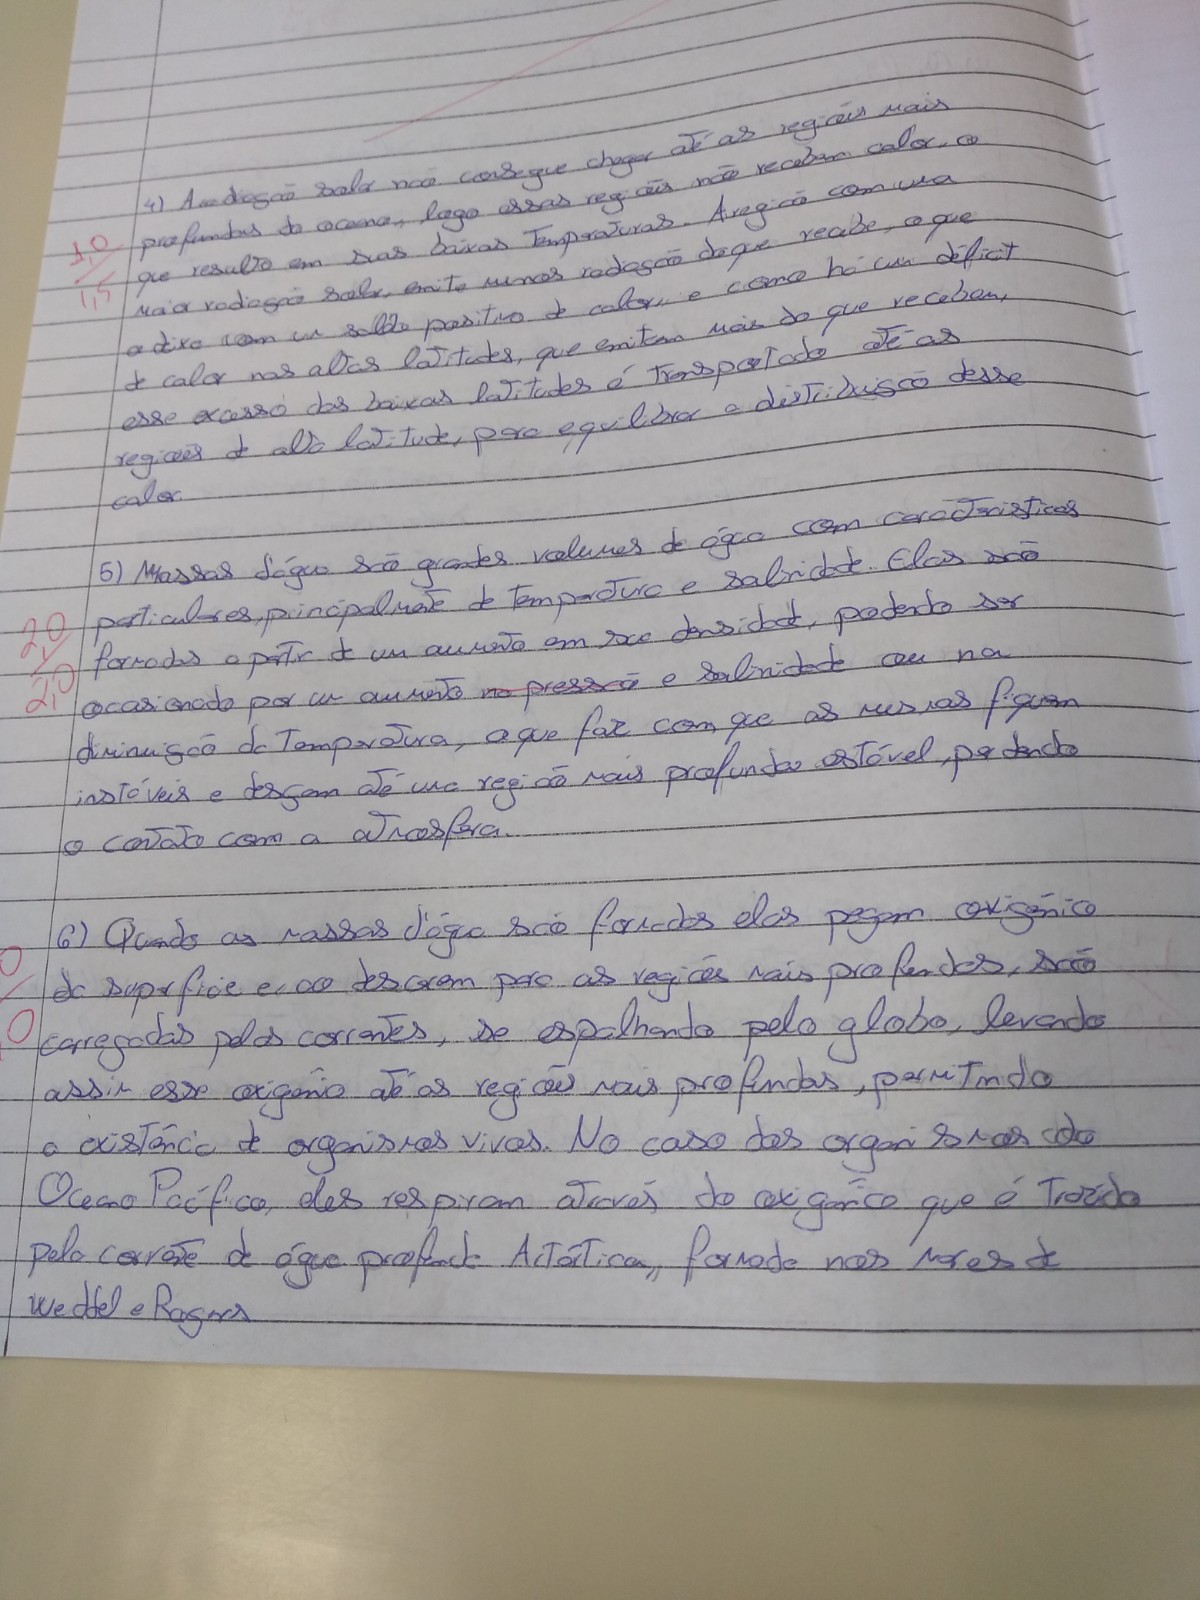 4) A radiação solar não consegue chegar até as regiões mais
1,0 profundas do oceano, logo essas regiões não recebem calor, o
1,5 que resulta em suas baixas temperaturas. A região com uma
maior radiação solar, emite menos radiação do que recebe, o que
a deixa com um saldo positivo de calor, e como há um déficit
de calor nas altas latitudes, que emitem mais do que recebem,
esse excesso das baixas latitudes é transportado até as
regiões de alta latitude, para equilibrar a distribuição desse
calor.
5) Massas d'água são grandes volumes de água com características
2,0 particulares, principalmente de temperatura e salinidade. Elas são
2,0 formadas a partir de um aumento em sua densidade, podendo ser
ocasionado por um aumento na pressão e salinidade ou na
diminuição da temperatura, o que faz com que as mesmas fiquem
instáveis e desçam até uma região mais profunda estável, perdendo
o contato com a atmosfera.
6) Quando as massas d'água são formadas elas pegam oxigênico
da superfície e, ao descerem para as regiões mais profundas, são
carregadas pelas correntes, se espalhando pelo globo, levando
assim esse oxigênio até as regiões mais profundas, permitindo
a existência de organismos vivos. No caso dos organismos do
Oceano Pacífico, eles respiram através do oxigênico que é trazido
pela corrente de água profunda Antártica, formada nos mares de
Weddel e